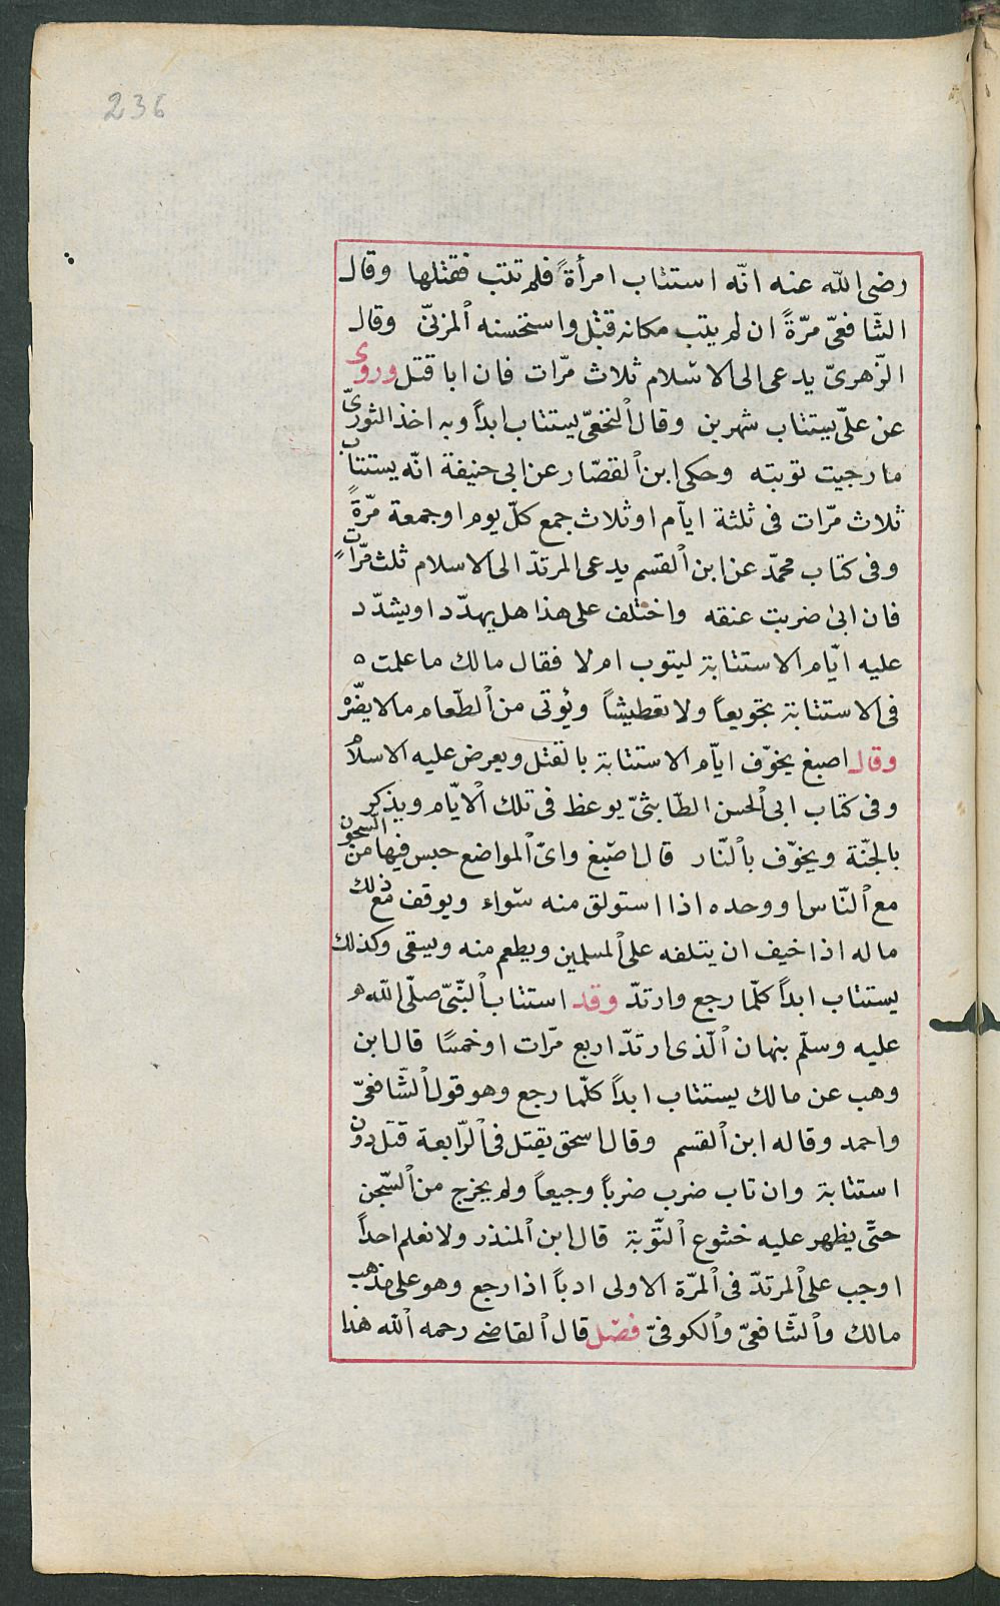 236
رضی الله عنه انّه استتاب امرأةً فلم تتب فقتلها وقال
الشّافعیّ مرّةً ان لم يتب مكانه قتل واستحسنه المزنیّ وقال
الزّهریّ يدعی الی الاسلام ثلاث مرّات فان ابا قتل وروی
عن علیّ يستتاب شهرين وقال النخعیّ يستتاب ابداً وبه اخذ الثوریّ
ما رجيت توبته وحكی ابن القصّار عن ابی حنيفة انّه يستتاب
ثلاث مرّات فی ثلثة ايّام او ثلاث جمع كلّ يوم او جمعة مرّةً
وفی كتاب محمّد عن ابن القسم يدعی المرتدّ الی الاسلام ثلث مرّاتٍ
فان ابی ضربت عنقه واختلف علی هذا هل يهدّد او يشدّد
عليه ايّام الاستتابة ليتوب ام لا فقال مالك ما علمت ه
فی الاستتابة تجويعاً ولا تعطيشاً ويؤتی من الطّعام ما لا يضّرْ
وقال اصبغ يخوّف ايّام الاستتابة بالقتل ويعرض عليه الاسلام
وفی كتاب ابی الحسن الطّابثیّ يوعظ فی تلك الايّام ويذكر
بالجنّة ويخوّف بالنّار قال اصبغ وایّ المواضع حبس فيها من السجون
مع النّاس او وحده اذا استولق منه سواء ويوقف مع ذلك
ماله اذا خيف ان يتلفه علی المسلمين ويطعم منه ويسقی وكذلك
يستتاب ابداً كلّما رجع وارتدّ وقد استتاب النّبیّ صلّی الله
عليه وسلّم بنهان الّذی ارتدّ اربع مرّات او خمسًا قال ابن
وهب عن مالك يستتاب ابداً كلّما رجع وهو قول الشّافعیّ
واحمد وقاله ابن القسم وقال اسحق يقتل فی الرّابعة قتل دون
استتابة وان تاب ضرب ضرباً وجيعاً ولم يخرج من السّجن
حتّی يظهر عليه خشوع التّوبة قال ابن المنذر ولا نعلم احداً
اوجب علی المرتدّ فی المرّة الاولی ادباً اذا رجع وهو علی مذهب
مالك والشّافعیّ والكوفیّ فصل قال القاضے رحمه الله هذا